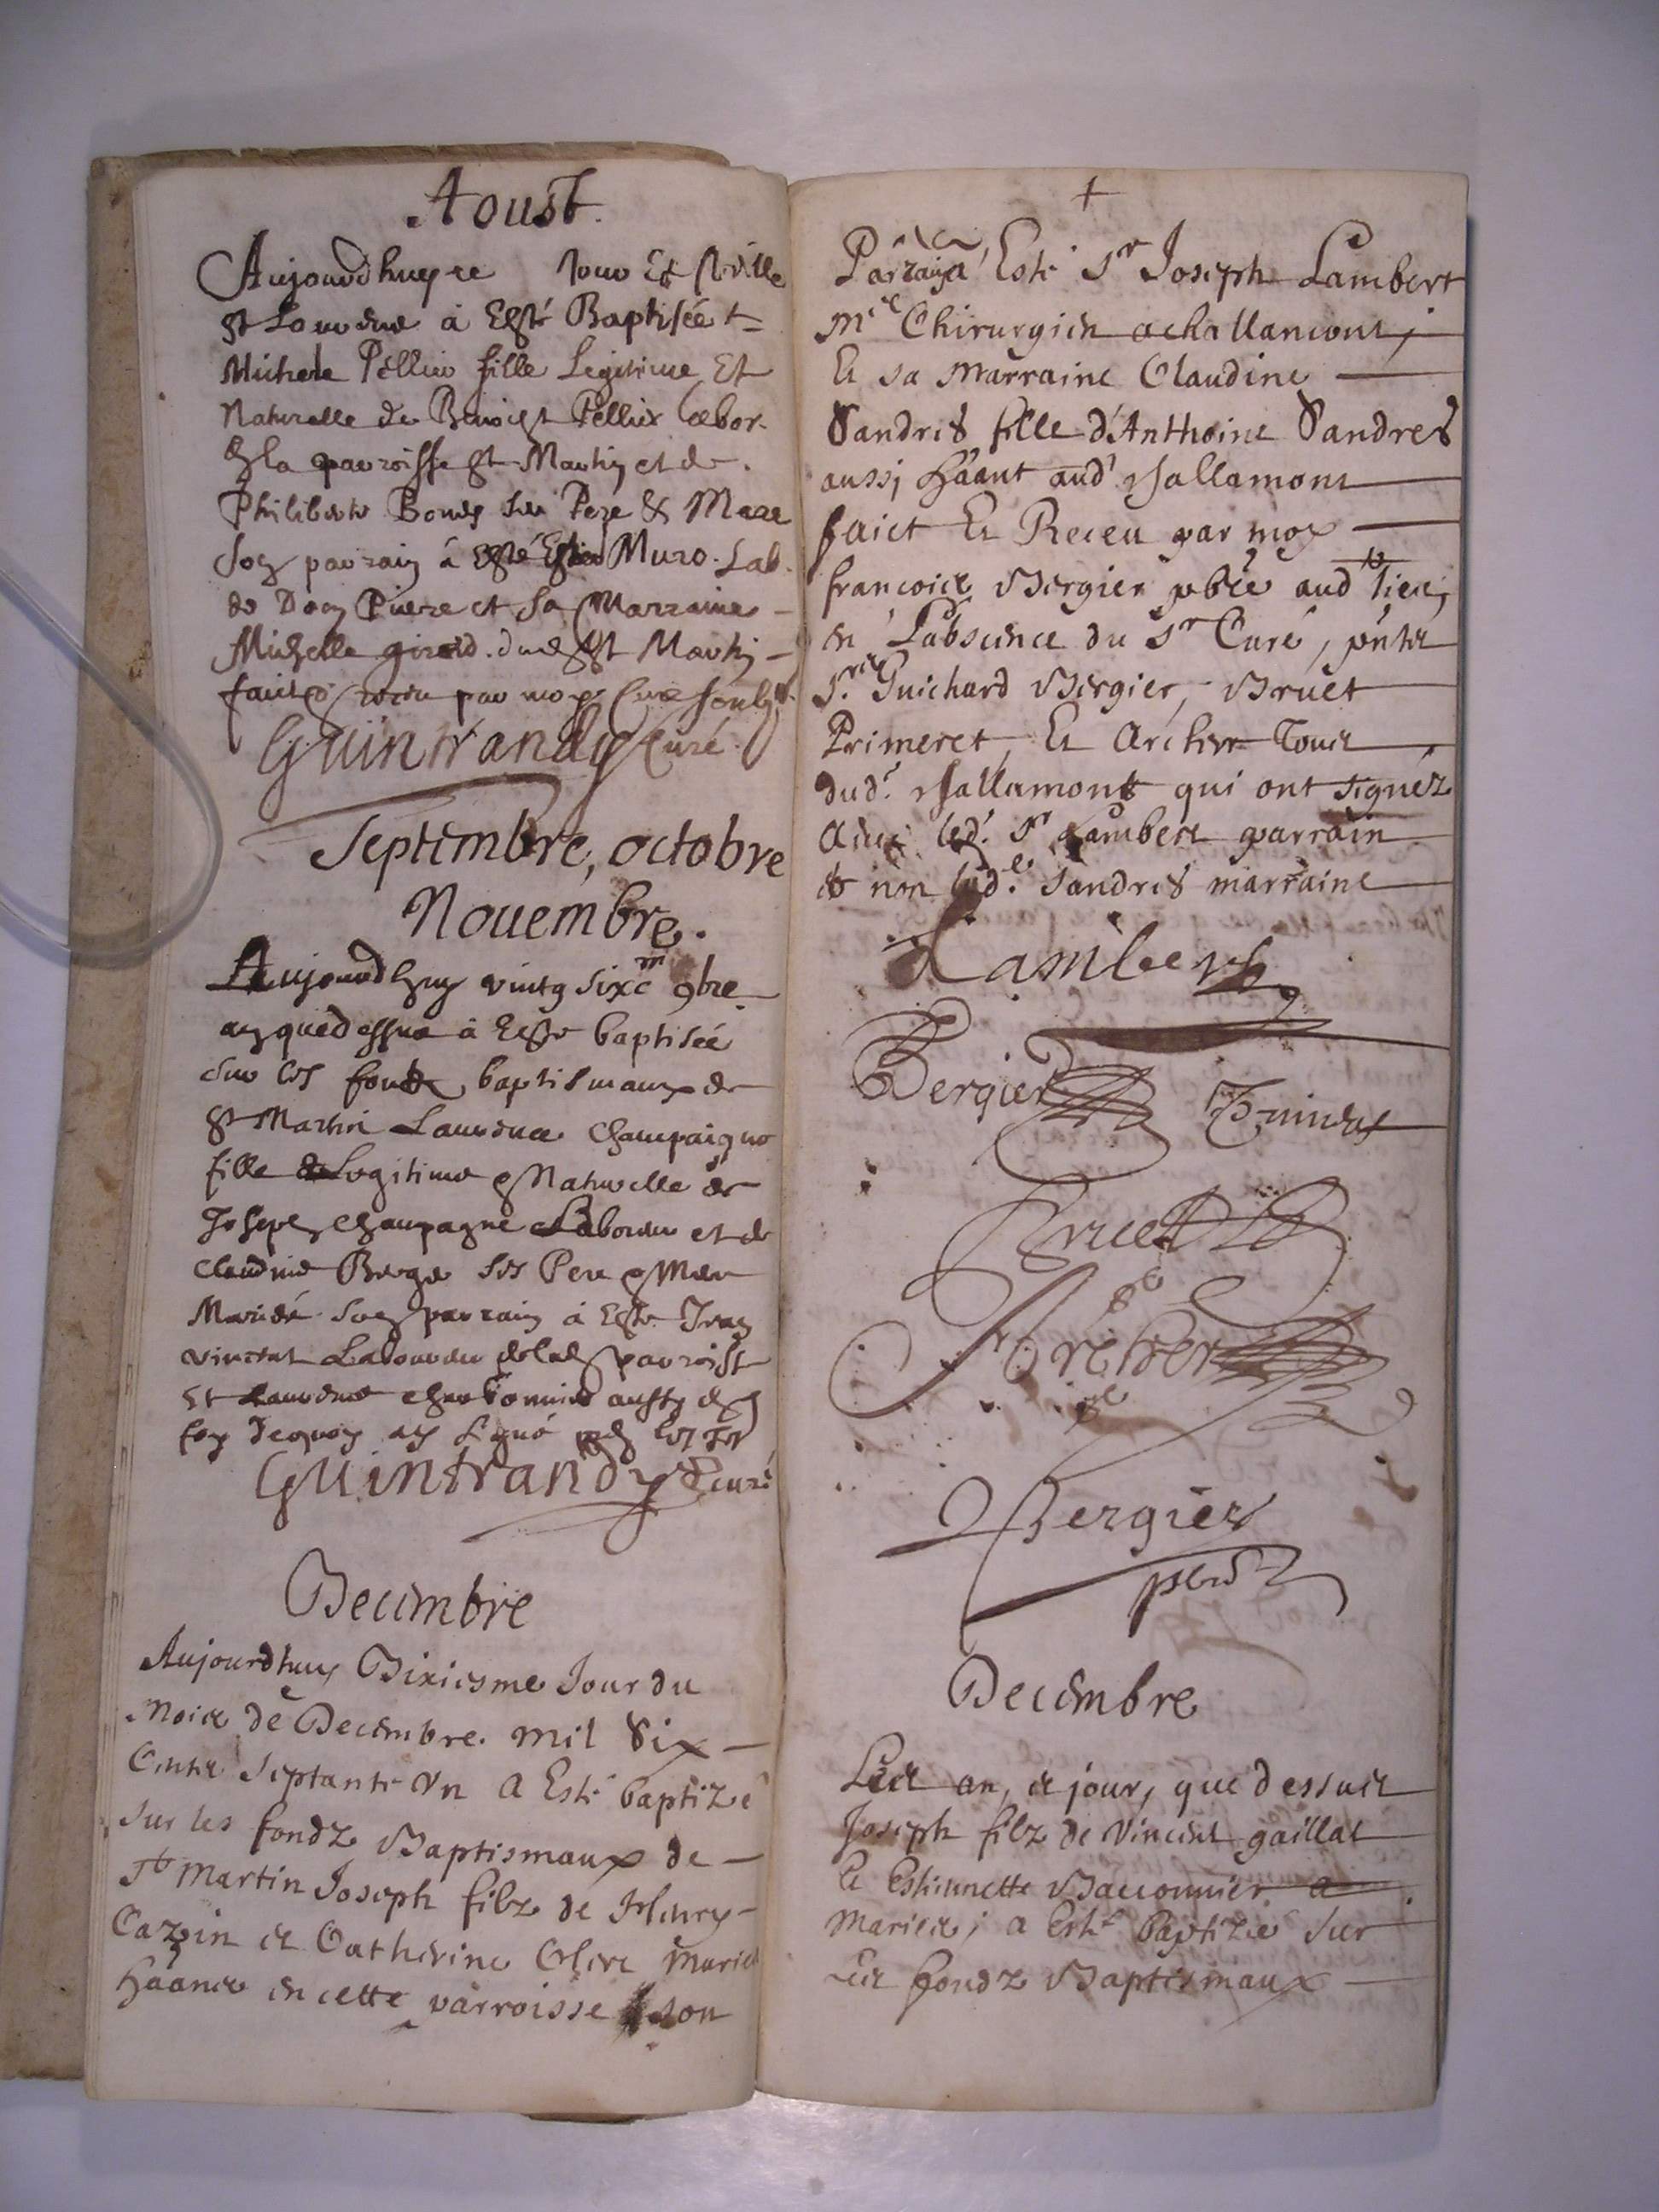 Aoust.
Aujourdhuy Jour Et
St a Esté Baptisée
Michele Pellier fille Legitime Et
Naturelle de Benoist Pellier labor.
la parroisse St Martin et de
Philiberte Pere & Mere
Son parrain à Esté Muro. Lab.
de Dom Pierre et Sa Marraine
Michelle St Martin
fait & par moy Curé
Guintrandy Curé
Septembre, octobre
Nouembre.
Aujourdhuy vintg sixe m 9bre
an que dessus à Esté baptisée
sur les fonds baptismaux de
St Martin Laurence Champaigne
fille Legitime & Naturelle de
Joseph Champagne Laboureur et de
Claudine Berge ses Pere & Mere
Mariés Son parrain à Esté
vincent Laboureur parroisse
Et Laurence aussy
foy dequoy ay Signé
Guintrandy Curé
Decembre
Aujourdhuy Dixiesme Jour du
Mois de Decembre. mil Six
Cents Septante Vn a Esté baptizé
sur les fondz Baptismaux de
St Martin Joseph filz de Henry
Cazoin et Catherine Clere Maries
häants en cette parroisse son
+
Parrain a Esté Sr Joseph Lambert
Mre Chirurgien a challamont,
Et sa Marraine Claudine
Sandres fille d'Anthoine Sandres
aussi häant aud challamont
faict Et Receu par moy
francois Bergier pbre aud lieu,
en Labsence du Sr Curé, pnts
Srs Guichard Bergier, Bruet
Primeret, Et Archer Tous
dud. challamont qui ont signéz
auec led. Sr Lambert parrain
& non lad.e Sandres marraine
Lambert
Bergier
Bruet
Archer
Bergier
pbre
Decembre
Les an, et jour, que dessus
Joseph filz de Vincent gaillat
Et Estiennette Baconnier
Maries; a Esté Baptizé Sur
Les fondz Baptismaux